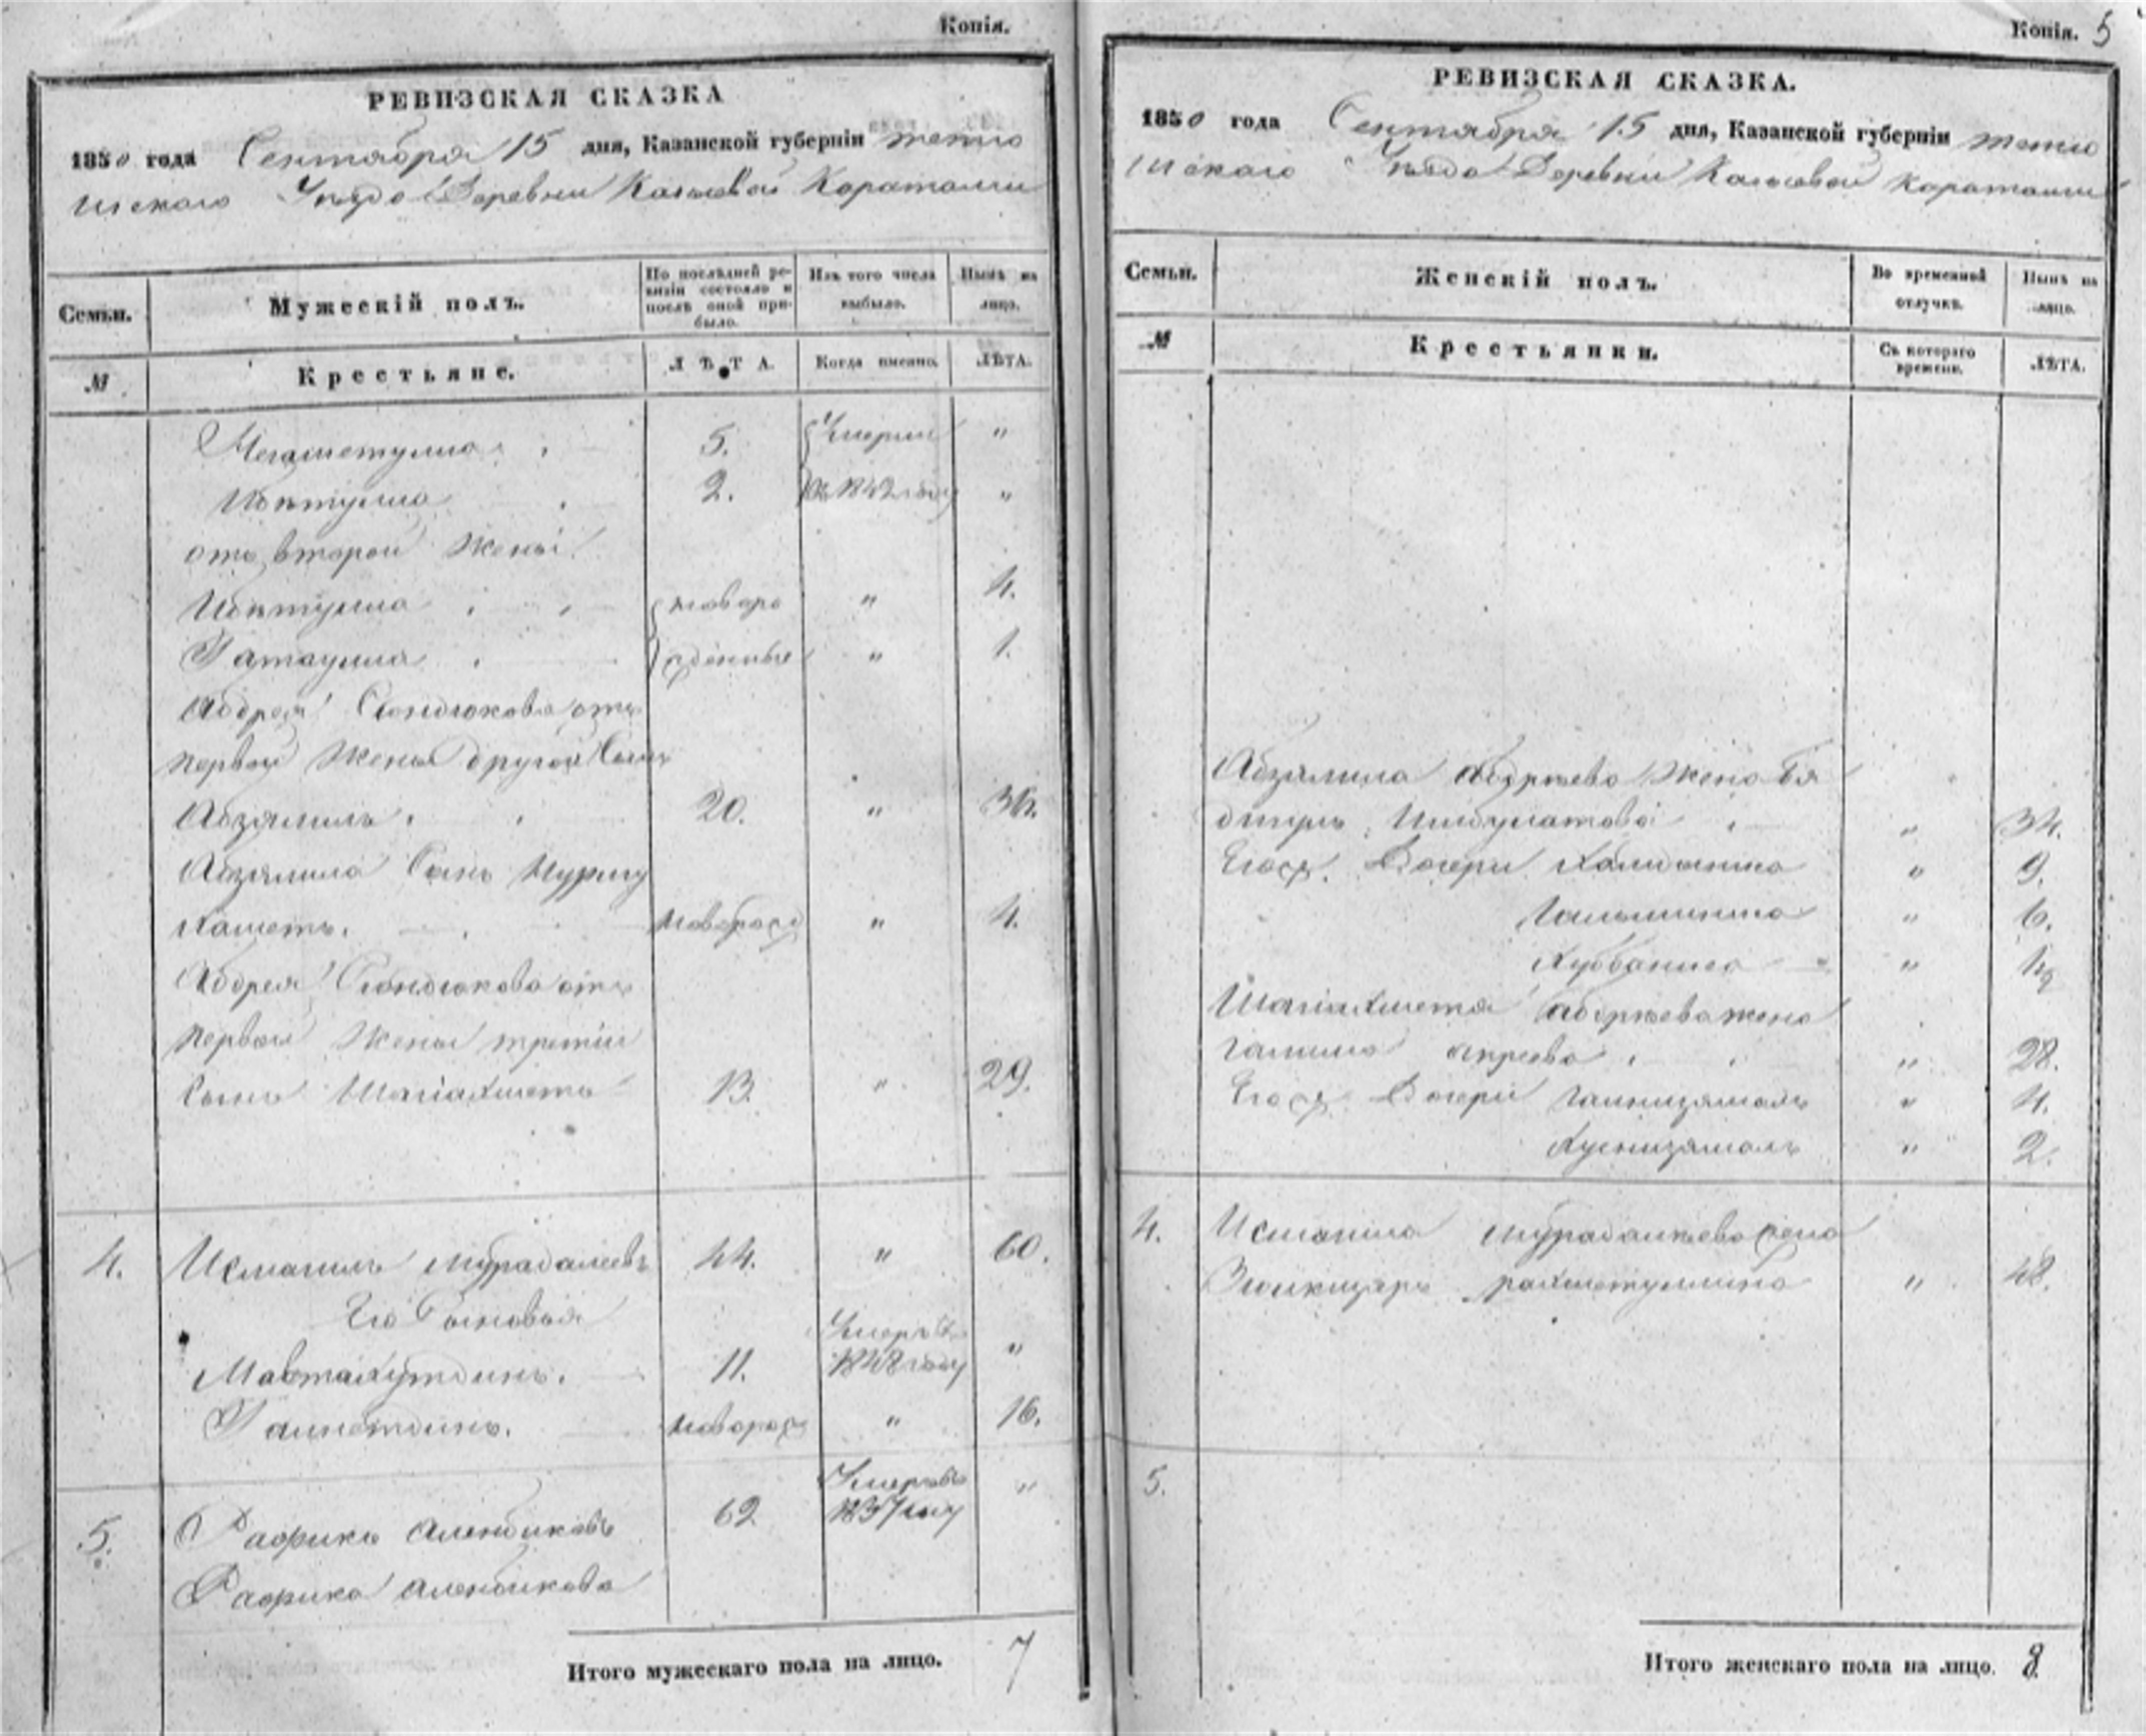 Копія.
РЕВИЗСКАЯ СКАЗКА
1850 года Сентября 15 дня, Казанской губерніи Тетю
шскаго Уѣзда Деревни Караталги
Семьи.
Мужескій полъ.
По послѣдней ре-
визіи состояло и
послѣ оной при-
было.
Изъ того числа
выбыло.
Нынѣ на
лицо.
№
Крестьяне.
ЛѢТА.
Когда именно.
ЛѢТА.
Негаметулла 5. Умерли "
Ибятулла 2. въ 1842 году "
отъ второй жены
Ибятулла новоро " 4.
Гатаулла жденные " 1.
Абдрея Сюндюкова отъ
первой жены другой Сынъ
Абзялилъ. 20. " 36.
Абзялила Сынъ Нурму
хаметъ. новорожд " 4.
Абдрея Сюндюкова отъ
первой жены третій
Сынъ Шагіахметъ 13. " 29.
4. Исмагилъ Мурадалеевъ 44. " 60.
Его Сыновья
Мавтахутдинъ. 11. Умеръ въ 1848 году "
Гайнетдинъ. новорож " 16.
5. Рафикъ Аленбиковъ 62 Умеръ въ 1837 году "
Рафика Аленбикова
Итого мужескаго пола на лицо. 7
Копія. 5
РЕВИЗСКАЯ СКАЗКА.
1850 года Сентября 15 дня, Казанской губерніи Тетю
шскаго Уѣзда Деревни Караталги
Семьи.
Женскій полъ.
Во временной
отлучкѣ.
Нынѣ на
лицо.
№
Крестьянки.
Съ котораго
времени.
ЛѢТА.
Абзялила Абдрѣева жена Бя
дигуль Ишбулатова " 34.
Его Дочери Халидянина " 9.
" 6.
Курбанига " 1/2
Шагіахметя Абдрѣева жена
Галима " 28.
Его Дочери Гайнизямаль " 4.
Хуснизямаль " 2.
4. Исмагила Мурадалѣева жена
рахметуллина " 48.
5.
Итого женскаго пола на лицо. 8.